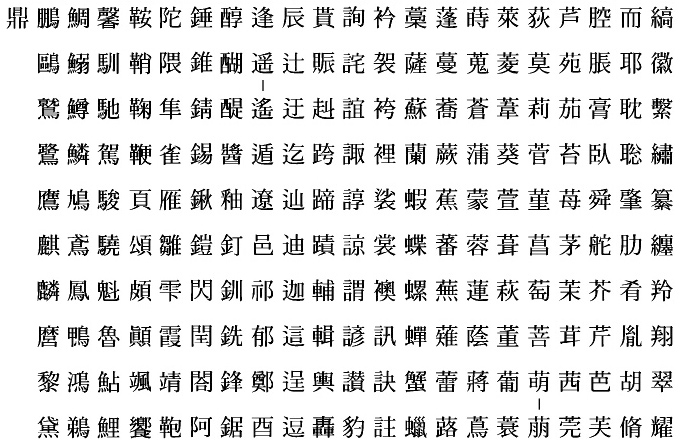 縞徽繫繡纂纏羚翔翠耀
而耶耽聡肇肋肴胤胡脩
腔脹膏臥舜舵芥芹芭芙
芦苑茄苔苺茅茉茸茜莞
荻莫莉菅菫菖萄菩萌萠
萊菱葦葵萱葺萩董葡蓑
蒔蒐蒼蒲蒙蓉蓮蔭蔣蔦
蓬蔓蕎蕨蕉蕃蕪薙蕾蕗
藁薩蘇蘭蝦蝶螺蟬蟹蠟
衿袈袴裡裟裳襖訊訣註
詢詫誼諏諄諒謂諺讃豹
貰賑赳跨蹄蹟輔輯輿轟
辰辻迂迄辿迪迦這逞逗
逢遥遙遁遼邑祁郁鄭酉
醇醐醍醬釉釘釧銑鋒鋸
錘錐錆錫鍬鎧閃閏閤阿
陀隈隼雀雁雛雫霞靖鞄
鞍鞘鞠鞭頁頌頗顚颯饗
馨馴馳駕駿驍魁魯鮎鯉
鯛鰯鱒鱗鳩鳶鳳鴨鴻鵜
鵬鷗鷲鷺鷹麒麟麿黎黛
鼎